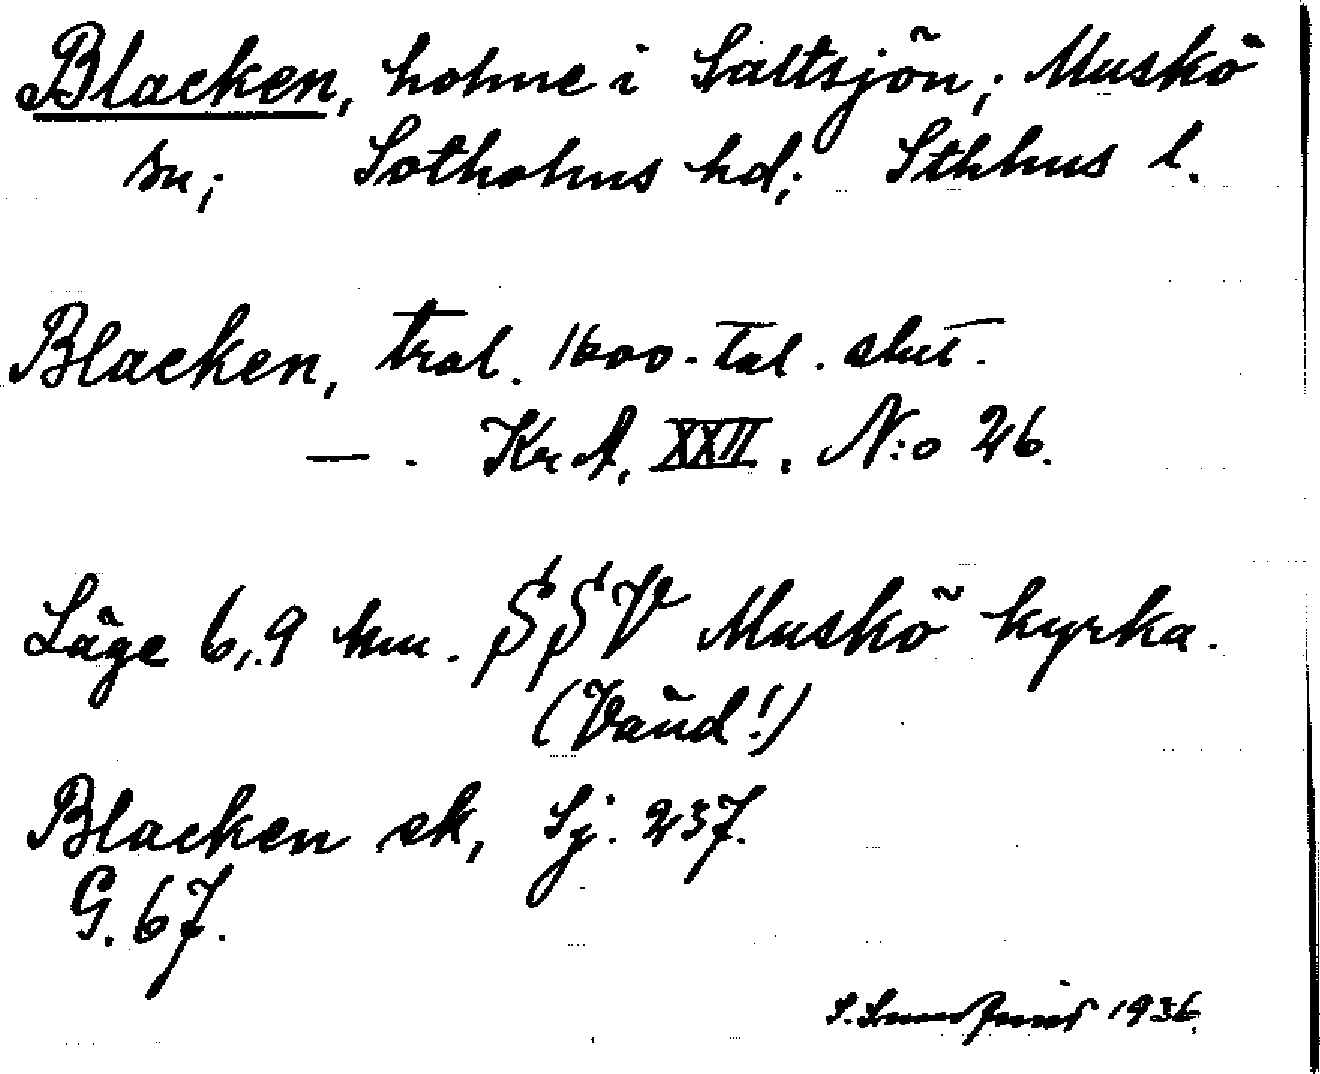 Blacken, holme i Saltsjön; Muskö
sn; Sotholms hd; Sthlms l.
Blacken, trol. 1600-tal. slut.
— . Krd. XXII. N:o 26.
Läge 6,9 km. SSV Muskö kyrka.
(Vänd!)
Blacken sk, Sj. 237.
G. 67.
S. 1936.